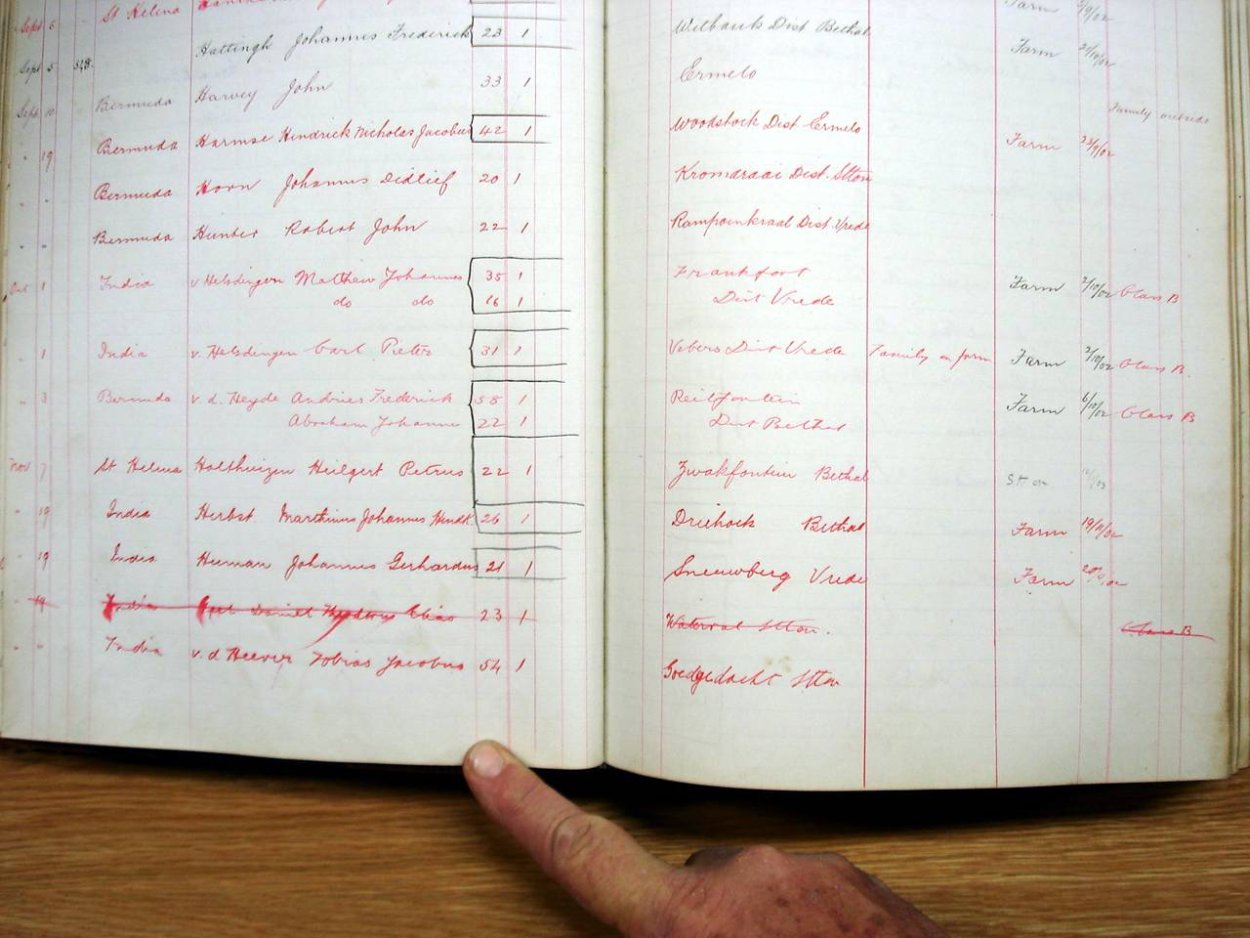 Sept 6 St Helina Farm 9/02
Hattingh Johannes Frederick 23 1 Wilbank Dist Bethal Farm
Sept 5 Bermuda Harvey John 33 1 Ermelo
Sept Bermuda Harmse Hendrick Nicholas Jacobus 42 1 Woodstock Dist Ermelo Farm 23/9/02 Family outside
" 19 Bermuda Horn Johannes Didlief 20 1 Kromdraai Dist. Stton
" " Bermuda Hunter Robert John 22 1 Rampoenkraal Dist. Vrede
Oct 1 India v Helsdingen Mathew Johannes 35 1 Frankfort Farm 2/10/02 Class B
do do 16 1 Dist Vrede
" 1 India v. Helsdingen Carl Pieter 31 1 Dist Vrede Family on farm Farm 2/10/02 Class B.
" 3 Bermuda v. d. Heyde Andries Frederick 58 1 Reitfontein Farm 6/10/02 Class B
Abraham Johannes 22 1 Dist Bethal
Nov 7 St Helina Holthuizen Hilgert Petrus 22 1 Zwakfontein Bethal
" 19 India Herbst Marthinus Johannes Hendk 26 1 Driehoek Bethal Farm 19/11/02
" 19 India Human Johannes Gerhardus 21 1 Sneeuwberg Vrede Farm
" 19 India Daniel Elias 23 1 Waterval Stton. Class B
" " India v. d Heever Tobias Jacobus 54 1 Goedgedacht Stton